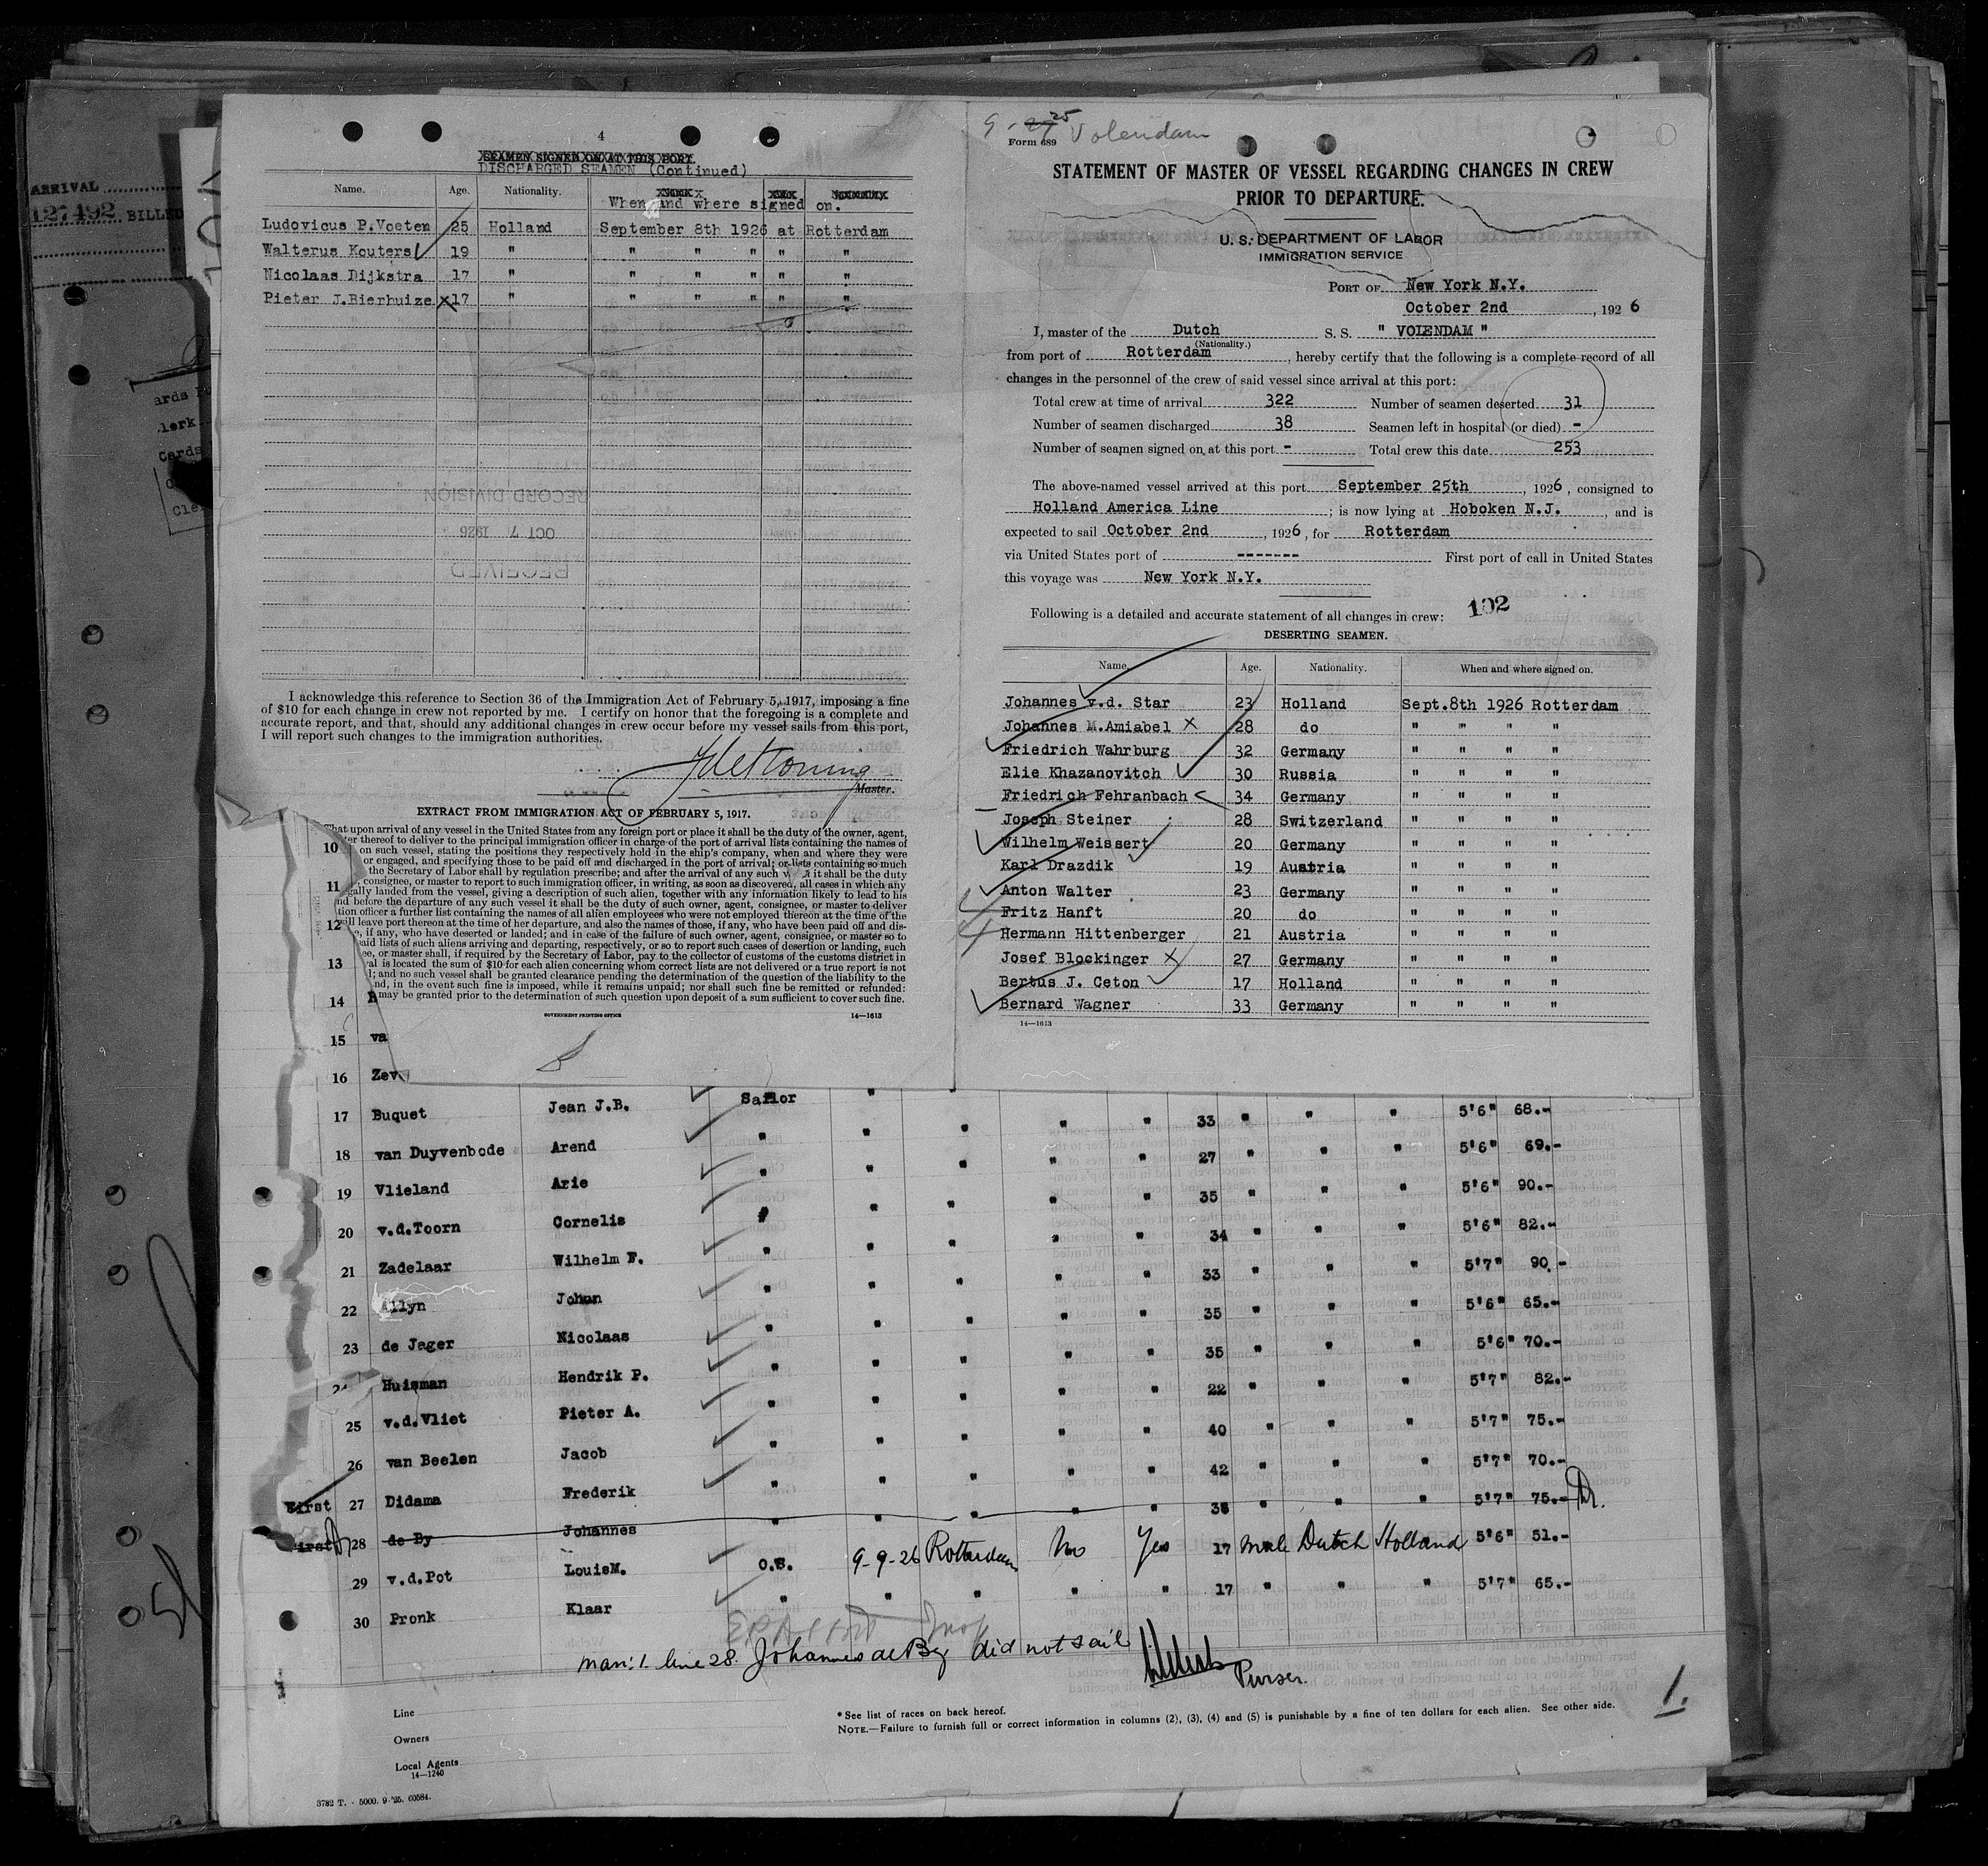 ARRIVAL
127492 BILLED
4
SEAMEN SIGNED ON AT THIS PORT.
DISCHARGED SEAMEN (Continued)
Name. Age. Nationality. When and where signed on.
Ludovicus P.Voeten 25 Holland September 8th 1926 at Rotterdam
Walterus Kouters 19 " " " " " "
Nicolaas Dijkstra 17 " " " " " "
Pieter J.Bierhuize X 17 " " " " " "
RECORD DIVISION
OCT 7 1926
RECEIVED
I acknowledge this reference to Section 36 of the Immigration Act of February 5, 1917, imposing a fine
of $10 for each change in crew not reported by me. I certify on honor that the foregoing is a complete and
accurate report, and that, should any additional changes in crew occur before my vessel sails from this port,
I will report such changes to the immigration authorities.
Master.
EXTRACT FROM IMMIGRATION ACT OF FEBRUARY 5, 1917.
That upon arrival of any vessel in the United States from any foreign port or place it shall be the duty of the owner, agent,
thereof to deliver to the principal immigration officer in charge of the port of arrival lists containing the names of
on such vessel, stating the positions they respectively hold in the ship's company, when and where they were
or engaged, and specifying those to be paid off and discharged in the port of arrival; or lists containing so much
the Secretary of Labor shall by regulation prescribe; and after the arrival of any such it shall be the duty
consignee, or master to report to such immigration officer, in writing, as soon as discovered, all cases in which any
gally landed from the vessel, giving a description of such alien, together with any information likely to lead to his
nd before the departure of any such vessel it shall be the duty of such owner, agent, consignee, or master to deliver
tion officer a further list containing the names of all alien employees who were not employed thereon at the time of the
ill leave port thereon at the time of her departure, and also the names of those, if any, who have been paid off and dis-
, if any, who have deserted or landed; and in case of the failure of such owner, agent, consignee, or master so to
aid lists of such aliens arriving and departing, respectively, or so to report such cases of desertion or landing, such
ee, or master shall, if required by the Secretary of Labor, pay to the collector of customs of the customs district in
val is located the sum of $10 for each alien concerning whom correct lists are not delivered or a true report is not
; and no such vessel shall be granted clearance pending the determination of the question of the liability to the
nd, in the event such fine is imposed, while it remains unpaid; nor shall such fine be remitted or refunded:
may be granted prior to the determination of such question upon deposit of a sum sufficient to cover such fine.
GOVERNMENT PRINTING OFFICE 14—1613
9-25 Volendam
Form 689
STATEMENT OF MASTER OF VESSEL REGARDING CHANGES IN CREW
PRIOR TO DEPARTURE.
U. S. DEPARTMENT OF LABOR
IMMIGRATION SERVICE
PORT OF New York N.Y.
October 2nd, 1926
I, master of the Dutch S. S. " VOLENDAM "
(Nationality.)
from port of Rotterdam, hereby certify that the following is a complete record of all
changes in the personnel of the crew of said vessel since arrival at this port:
Total crew at time of arrival 322 Number of seamen deserted 31
Number of seamen discharged 38 Seamen left in hospital (or died) -
Number of seamen signed on at this port - Total crew this date 253
The above-named vessel arrived at this port September 25th, 1926, consigned to
Holland America Line; is now lying at Hoboken N.J., and is
expected to sail October 2nd, 1926, for Rotterdam
via United States port of ------- First port of call in United States
this voyage was New York N.Y.
Following is a detailed and accurate statement of all changes in crew: 102
DESERTING SEAMEN.
Name. Age. Nationality. When and where signed on.
Johannes v.d. Star 23 Holland Sept.8th 1926 Rotterdam
Johannes M.Amiabel X 28 do " " " "
Friedrich Wahrburg 32 Germany " " " "
Elie Khazanovitch 30 Russia " " " "
Friedrich Fehranbach 34 Germany " " " "
Joseph Steiner 28 Switzerland " " " "
Wilhelm Weissert 20 Germany " " " "
Karl Drazdik 19 Austria " " " "
Anton Walter 23 Germany " " " "
Fritz Hanft 20 do " " " "
Hermann Hittenberger 21 Austria " " " "
Josef Blockinger X 27 Germany " " " "
Bertus J. Ceton 17 Holland " " " "
Bernard Wagner 33 Germany " " " "
14—1613
10
11
12
13
14
15 va
16 Zev
17 Buquet Jean J.B. Sailor " 33 " " " 5'6" 68.-
18 van Duyvenbode Arend " " " " " 27 " " " 5'6" 69.-
19 Vlieland Arie " " " " " 35 " " " 5'6" 90.-
20 v.d.Toorn Cornelis " " " " " 34 " " " 5'6" 82.-
21 Zadelaar Wilhelm F. " " " " " 33 " " " 5'7" 90.-
22 Allyn Johan " " " " " 35 " " " 5'6" 65.-
23 de Jager Nicolaas " " " " " 35 " " " 5'6" 70.-
24 Huisman Hendrik P. " " " " " 22 " " " 5'7" 82.-
25 v.d.Vliet Pieter A. " " " " " 40 " " " 5'7" 75.-
26 van Beelen Jacob " " " " " 42 " " " 5'7" 70.-
First 27 Didama Frederik " " " " " 38 " " " 5'7" 75.-
First 28 de By Johannes " 17 5'6" 51.-
29 v.d.Pot LouisM. O.S. 9-9-26 Rotterdam No Yes 17 Male Dutch Holland 5'7" 65.-
30 Pronk Klaar " " " " "
man: 1. line 28. Johannes de By did not sail
Purser.
1.
Line
Owners
Local Agents
14—1240
* See list of races on back hereof.
NOTE.—Failure to furnish full or correct information in columns (2), (3), (4) and (5) is punishable by a fine of ten dollars for each alien. See other side.
3782 T. - 5000. 9-'25. 60584.